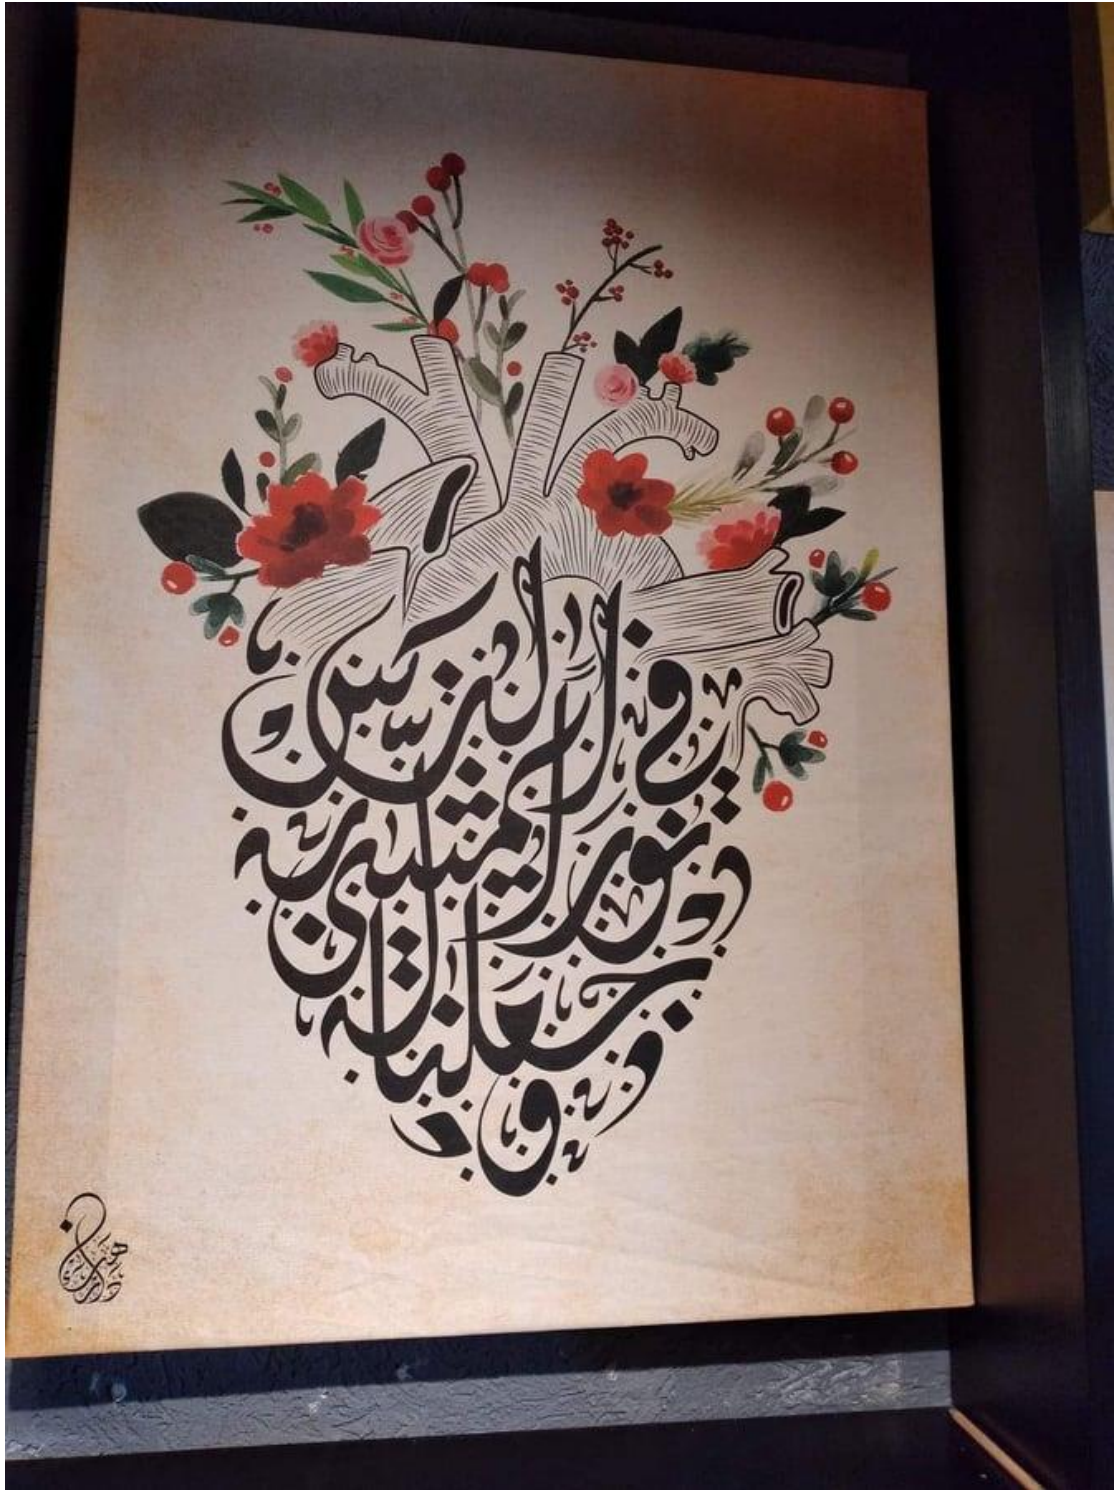 وجعلنا له
نورا يمشي به
في الناس